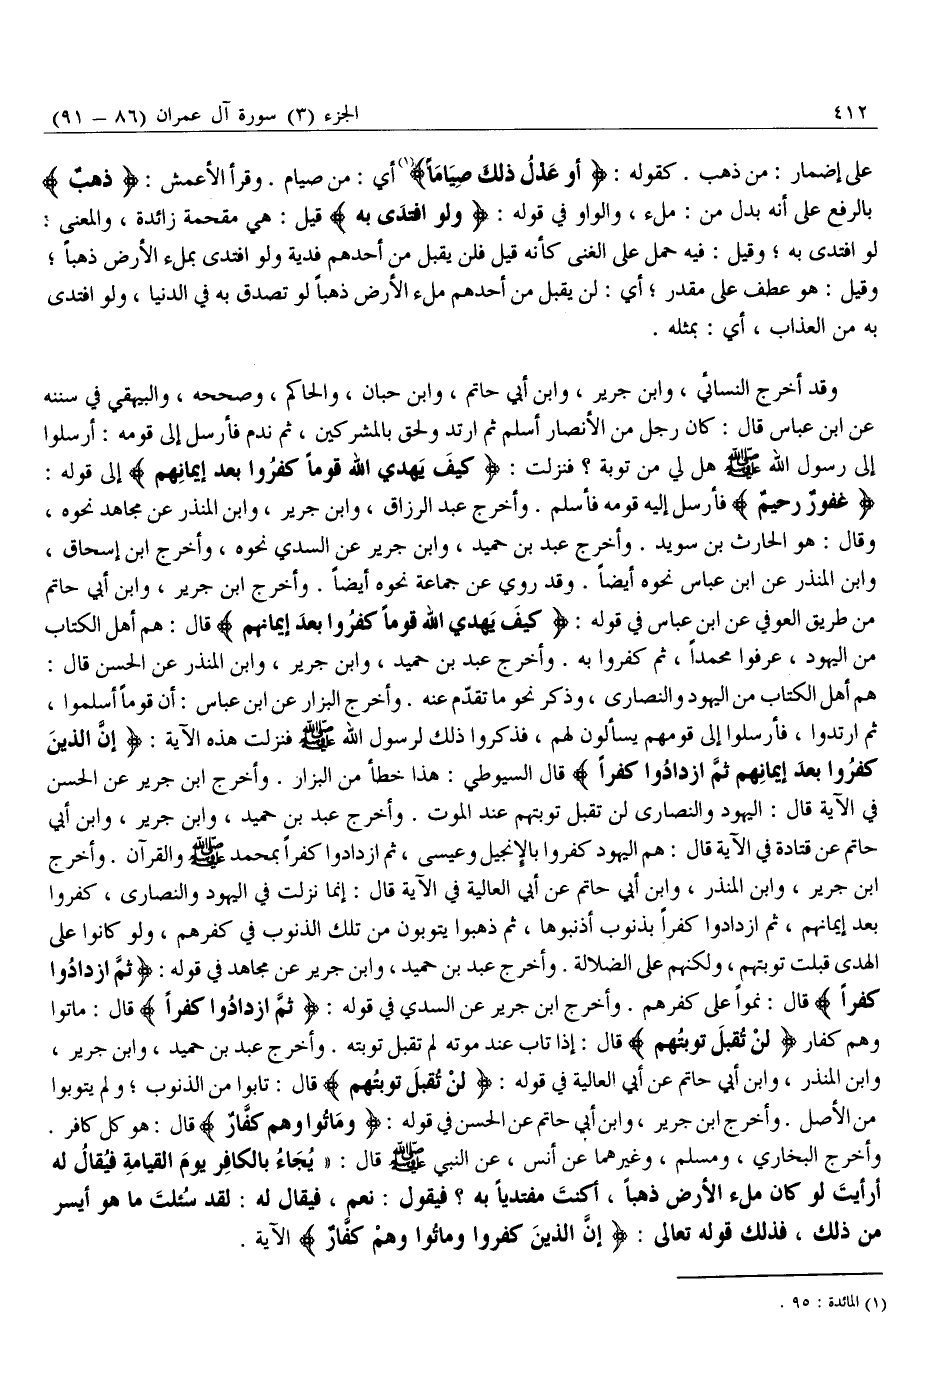 ٤١٢ الجزء (٣) سورة آل عمران (٨٦ – ٩١)
على إضمار : من ذهب . كقوله : ﴿ أو عَدْلُ ذلكَ صِيَاماً﴾(١) أي : من صيام . وقرأ الأعمش : ﴿ ذهبٌ ﴾
بالرفع على أنه بدل من : ملء ، والواو في قوله : ﴿ ولو افتدَى به ﴾ قيل : هي مقحمة زائدة ، والمعنى :
لو افتدى به ؛ وقيل : فيه حمل على الغنى كأنه قيل فلن يقبل من أحدهم فدية ولو افتدى بملء الأرض ذهباً ؛
وقيل : هو عطف على مقدر ؛ أي : لن يقبل من أحدهم ملء الأرض ذهباً لو تصدق به في الدنيا ، ولو افتدى
به من العذاب ، أي : بمثله .
وقد أخرج النسائي ، وابن جرير ، وابن أبي حاتم ، وابن حبان ، والحاكم ، وصححه ، والبيهقي في سننه
عن ابن عباس قال : كان رجل من الأنصار أسلم ثم ارتد ولحق بالمشركين ، ثم ندم فأرسل إلى قومه : أرسلوا
إلى رسول الله ﷺ هل لي من توبة ؟ فنزلت : ﴿ كيفَ يَهدي الله قوماً كفَرُوا بعد إيمانِهم ﴾ إلى قوله :
﴿ غفورٌ رحيمٌ ﴾ فأرسل إليه قومه فأسلم . وأخرج عبد الرزاق ، وابن جرير ، وابن المنذر عن مجاهد نحوه ،
وقال : هو الحارث بن سويد . وأخرج عبد بن حميد ، وابن جرير عن السدي نحوه ، وأخرج ابن إسحاق ،
وابن المنذر عن ابن عباس نحوه أيضاً . وقد روي عن جماعة نحوه أيضاً . وأخرج ابن جرير ، وابن أبي حاتم
من طريق العوفي عن ابن عباس في قوله : ﴿ كيفَ يَهدي الله قوماً كفَرُوا بعدَ إيمانهم ﴾ قال : هم أهل الكتاب
من اليهود ، عرفوا محمداً ، ثم كفروا به . وأخرج عبد بن حميد ، وابن جرير ، وابن المنذر عن الحسن قال :
هم أهل الكتاب من اليهود والنصارى ، وذكر نحو ما تقدّم عنه . وأخرج البزار عن ابن عباس : أن قوماً أسلموا ،
ثم ارتدوا ، فأرسلوا إلى قومهم يسألون لهم ، فذكروا ذلك لرسول الله ﷺ فنزلت هذه الآية : ﴿ إنَّ الذينَ
كفَرُوا بعدَ إيمانِهم ثمَّ ازدادُوا كفراً ﴾ قال السيوطي : هذا خطأ من البزار . وأخرج ابن جرير عن الحسن
في الآية قال : اليهود والنصارى لن تقبل توبتهم عند الموت . وأخرج عبد بن حميد ، وابن جرير ، وابن أبي
حاتم عن قتادة في الآية قال : هم اليهود كفروا بالإنجيل وعيسى ، ثم ازدادوا كفراً بمحمد ﷺ والقرآن . وأخرج
ابن جرير ، وابن المنذر ، وابن أبي حاتم عن أبي العالية في الآية قال : إنما نزلت في اليهود والنصارى ، كفروا
بعد إيمانهم ، ثم ازدادوا كفراً بذنوب أذنبوها ، ثم ذهبوا يتوبون من تلك الذنوب في كفرهم ، ولو كانوا على
الهدى قبلت توبتهم ، ولكنهم على الضلالة . وأخرج عبد بن حميد ، وابن جرير عن مجاهد في قوله : ﴿ ثمَّ ازدادُوا
كفراً ﴾ قال : نمواً على كفرهم . وأخرج ابن جرير عن السدي في قوله : ﴿ ثمَّ ازدادُوا كفراً ﴾ قال : ماتوا
وهم كفار ﴿ لنْ تُقبلَ توبتُهم ﴾ قال : إذا تاب عند موته لم تقبل توبته . وأخرج عبد بن حميد ، وابن جرير ،
وابن المنذر ، وابن أبي حاتم عن أبي العالية في قوله : ﴿ لنْ تُقبلَ توبتُهم ﴾ قال : تابوا من الذنوب ؛ ولم يتوبوا
من الأصل . وأخرج ابن جرير ، وابن أبي حاتم عن الحسن في قوله : ﴿ ومَاتُوا وهم كفَّارٌ ﴾ قال : هو كل كافر .
وأخرج البخاري ، ومسلم ، وغيرهما عن أنس ، عن النبي ﷺ قال : « يُجَاءُ بالكافِر يومَ القيامةِ فيُقالُ له
أرأيتَ لو كان ملء الأرض ذهباً ، أكنتَ مفتدياً به ؟ فيقول : نعم ، فيقال له : لقد سئلتَ ما هو أيسر
من ذلك ، فذلك قوله تعالى : ﴿ إنَّ الذينَ كفروا وماتُوا وهمْ كفَّارٌ ﴾ الآية .
(١) المائدة : ٩٥ .